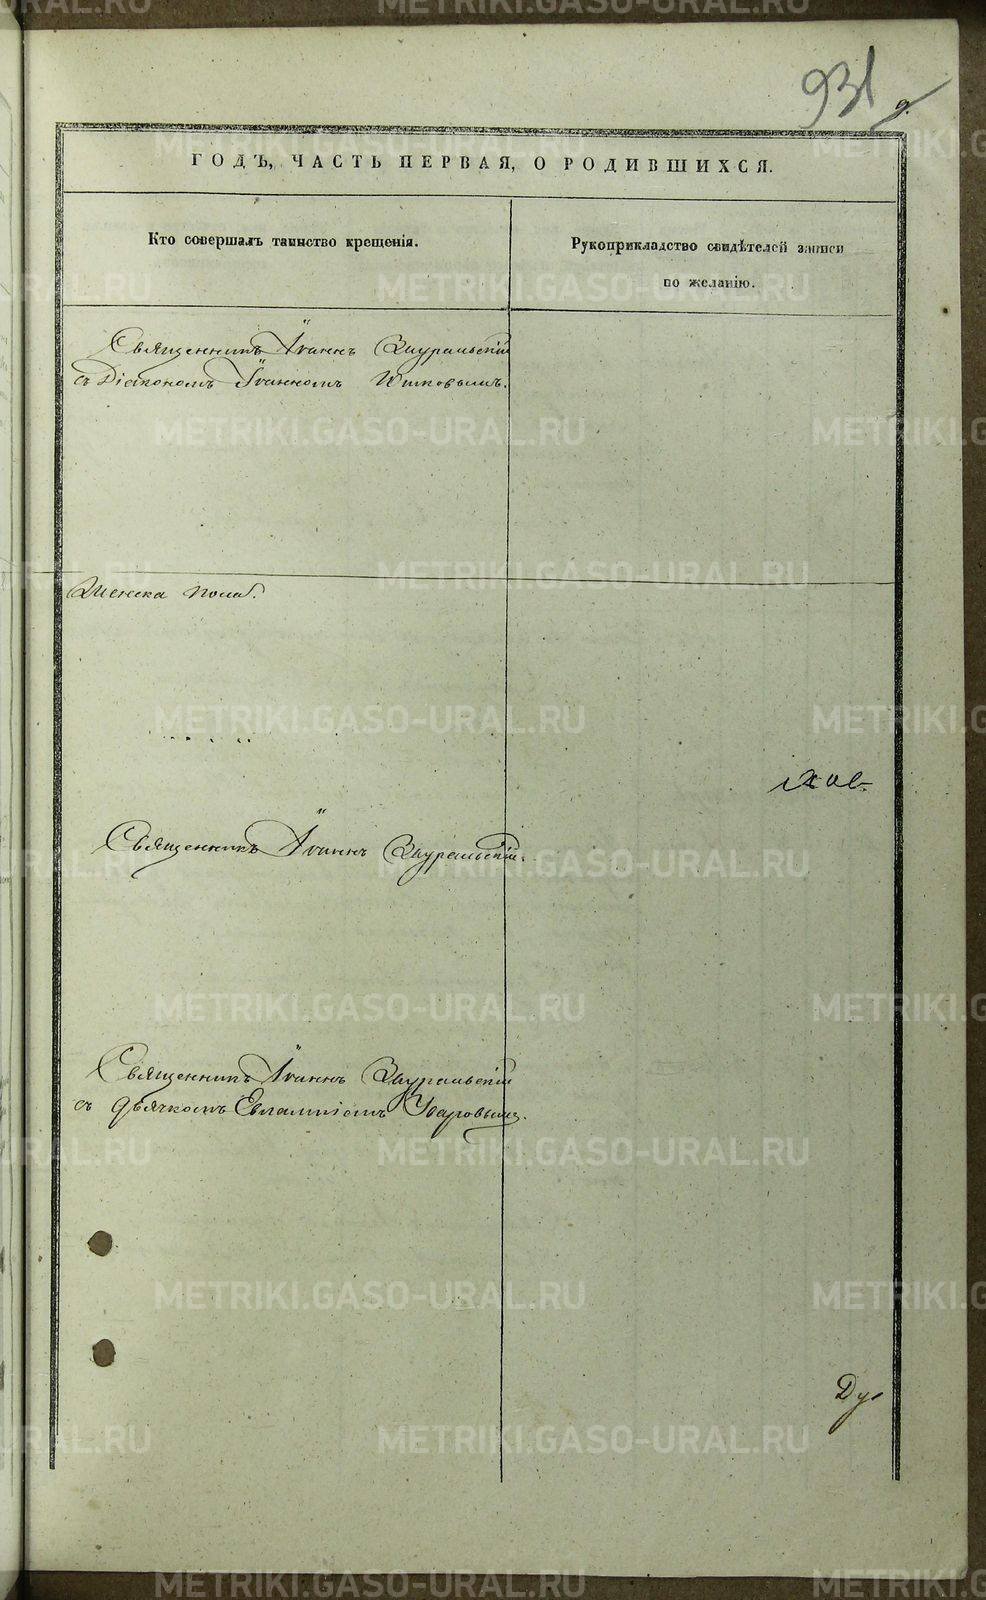 931
ГОДЪ, ЧАСТЬ ПЕРВАЯ, О РОДИВШИХСЯ.
Кто совершалъ таинство крещенія.
Рукоприкладство свидѣтелей записи
по желанію.
Священникъ Іоаннъ Зауральскій
съ Діакономъ Іоанномъ
Священникъ Іоаннъ Зауральскій.
Священникъ Іоаннъ Зауральскій
съ дьячкомъ Евлампіемъ Уваровымъ.
Ду
METRIKI.GASO-URAL.RU